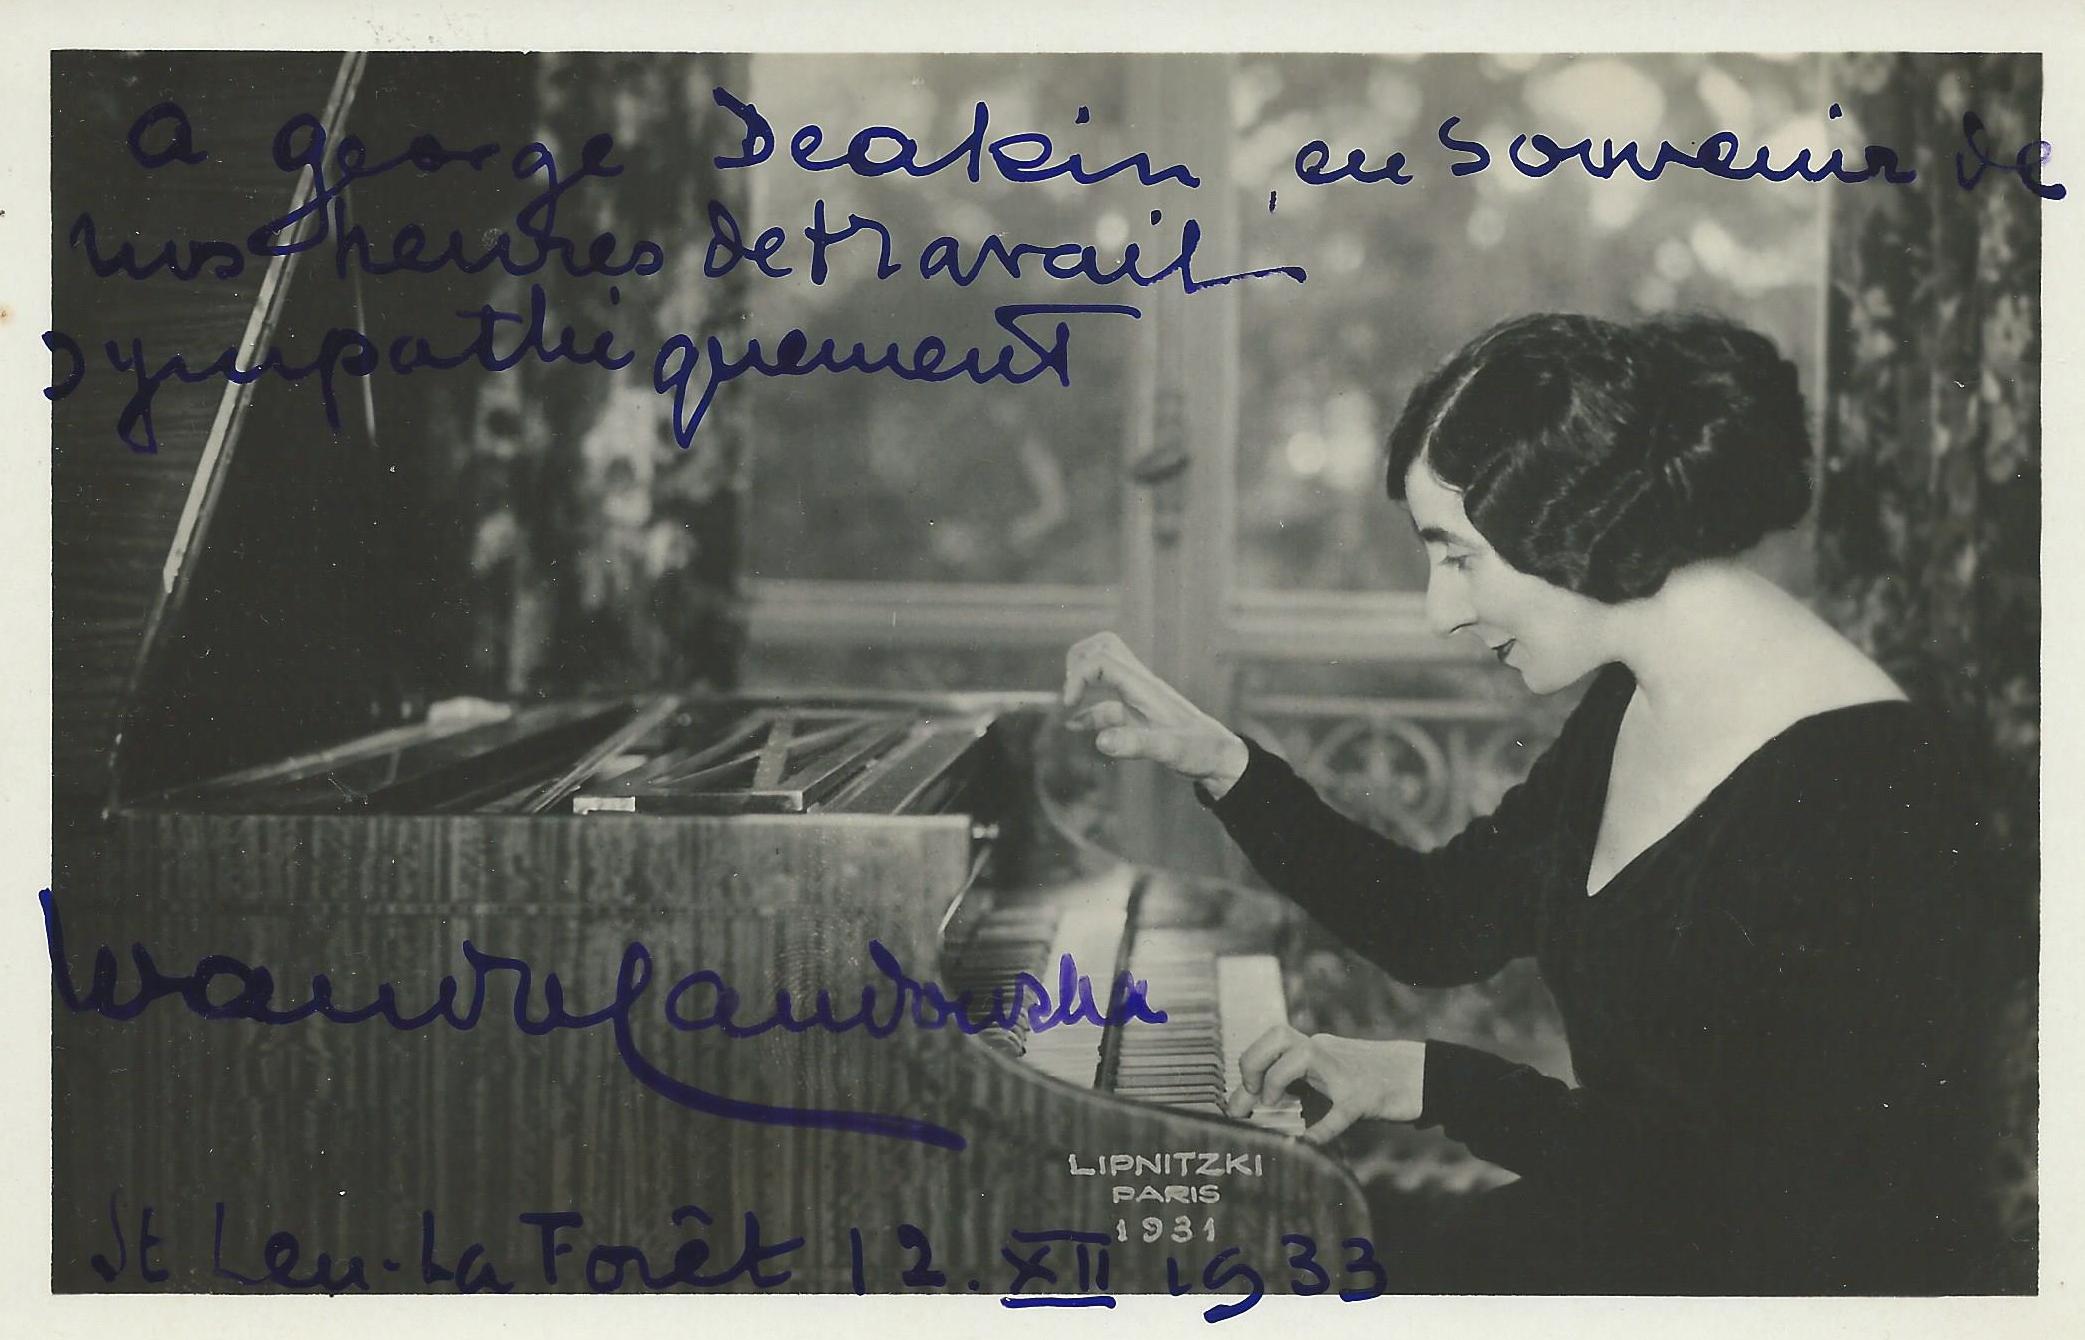 a george Deakin, en souvenir de
nos heures de travail
sympathiquement
Wanda Landowska
LIPNITZKI
PARIS
1931
St Leu-La Forêt 12. XII 1933